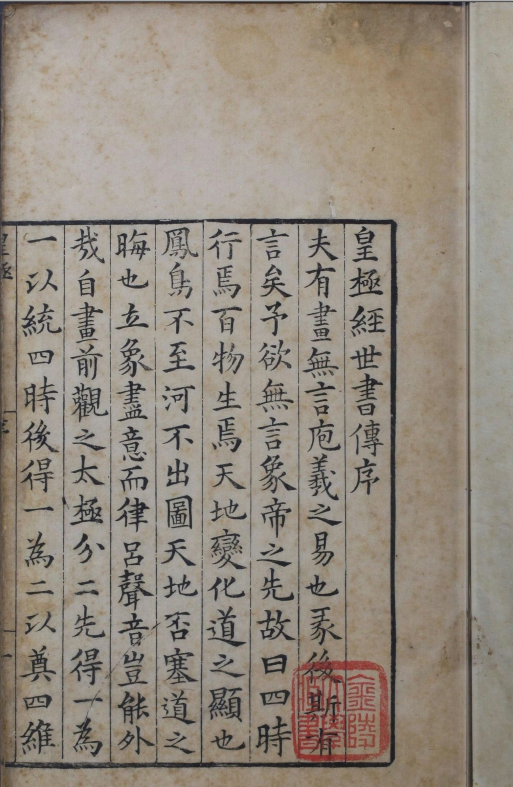 皇極經世書傳序
夫有畫無言庖羲之易也彖後斯有
言矣予欲無言象帝之先故曰四時
行焉百物生焉天地變化道之顯也
鳳鳥不至河不出圖天地否塞道之
晦也立象盡意而律呂聲音豈能外
哉自畫前觀之太極分二先得一為
一以統四時後得一為二以奠四維
皇極
序
一